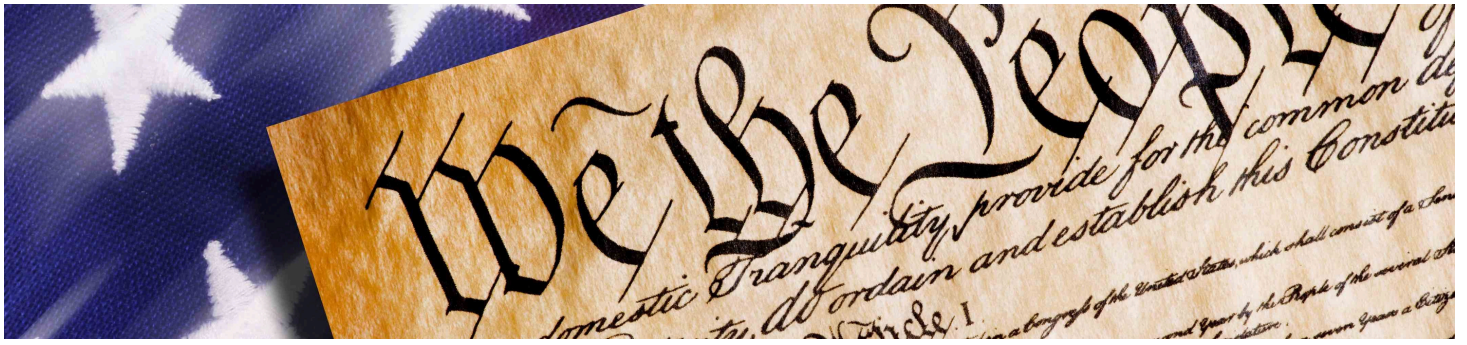 We the People
of
domestic Tranquility, provide for the common de
do ordain and establish this Constitu
Article. I.
a Congress of the United States, which shall consist of a Sena
Year by the People of the several
seven Years a Citize